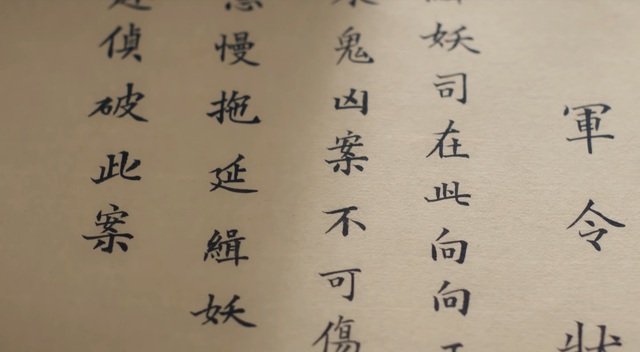 軍令狀
妖司在此向向
鬼凶案不可傷
慢拖延緝妖
偵破此案